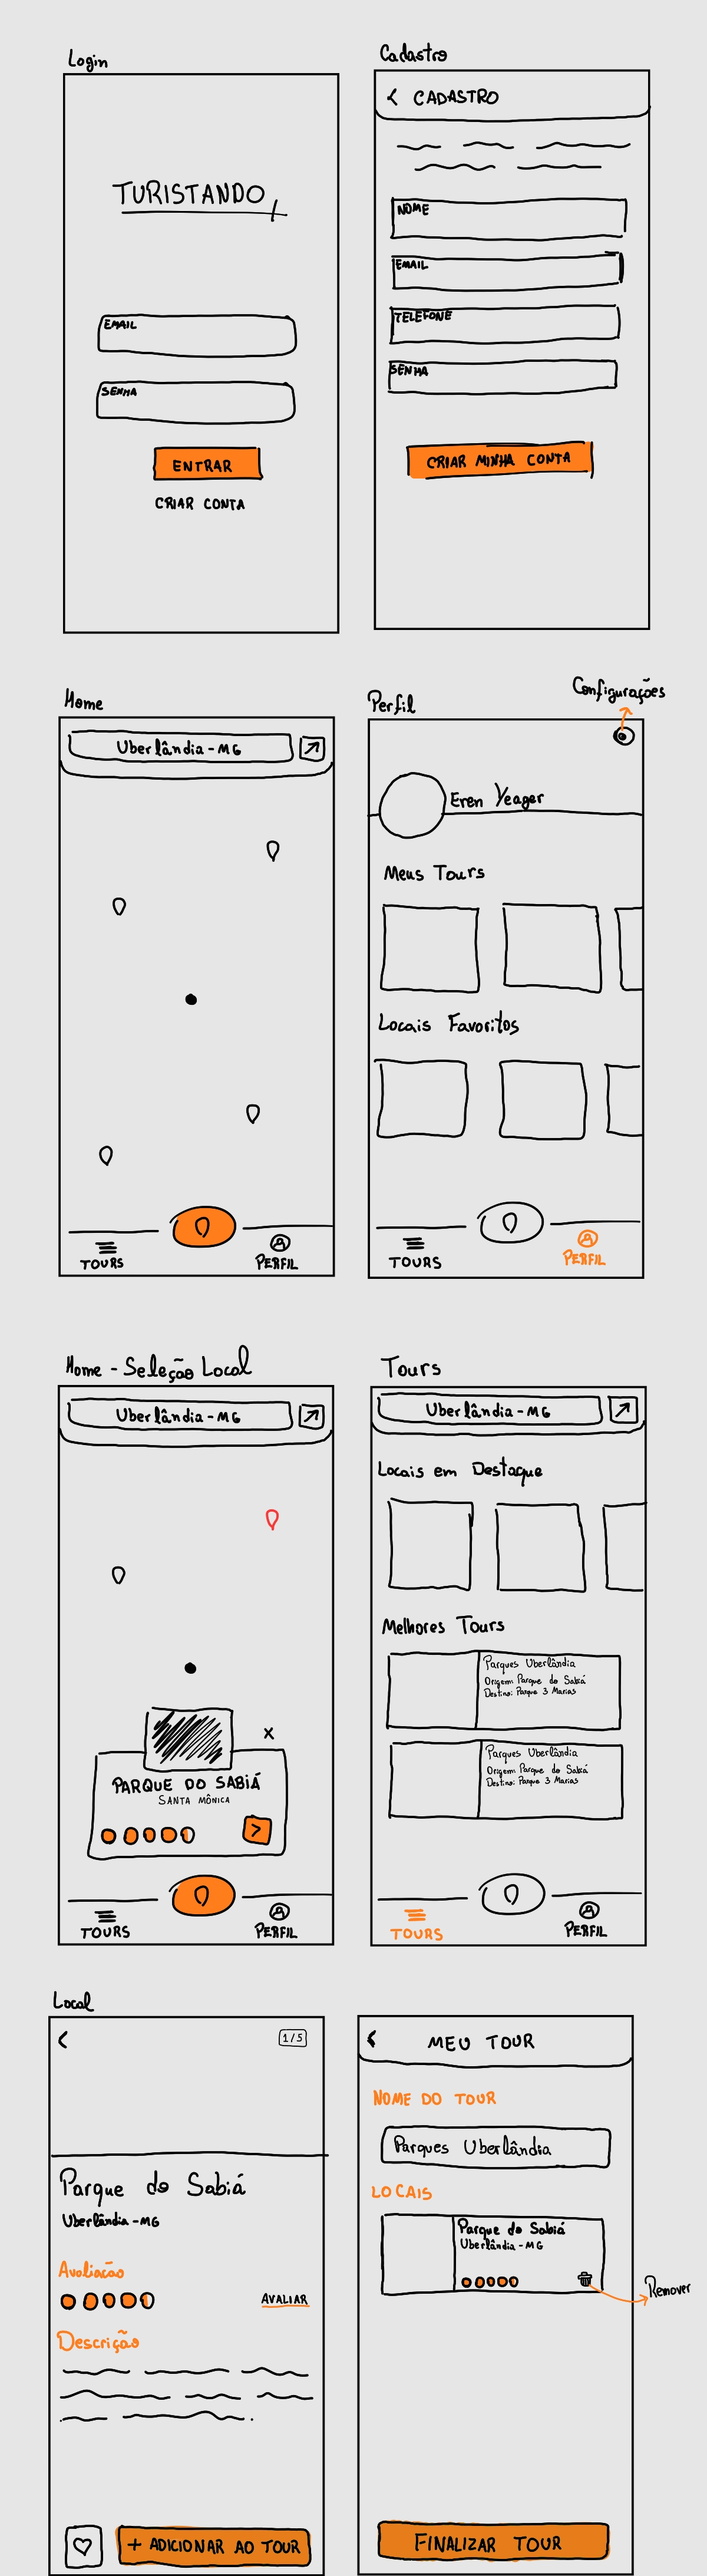 Login
TURISTANDO
EMAIL
SENHA
ENTRAR
CRIAR CONTA
Cadastro
< CADASTRO
NOME
EMAIL
TELEFONE
SENHA
CRIAR MINHA CONTA
Home
Uberlândia - MG
TOURS
PERFIL
Configurações
Perfil
Eren Yeager
Meus Tours
Locais Favoritos
TOURS
PERFIL
Home - Seleção Local
Uberlândia - MG
X
PARQUE DO SABIÁ
SANTA MÔNICA
>
TOURS
PERFIL
Tours
Uberlândia - MG
Locais em Destaque
Melhores Tours
Parques Uberlândia
Origem Parque do Sabiá
Destino: Parque 3 Marias
Parques Uberlândia
Origem Parque do Sabiá
Destino: Parque 3 Marias
TOURS
PERFIL
Local
<
1/5
Parque do Sabiá
Uberlândia - MG
Avaliação
AVALIAR
Descrição
+ ADICIONAR AO TOUR
< MEU TOUR
NOME DO TOUR
Parques Uberlândia
LOCAIS
Parque do Sabiá
Uberlândia - MG
Remover
FINALIZAR TOUR